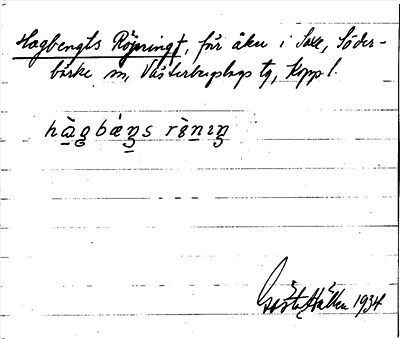 Hagbengts Röjningt, för åker i Saxe, Söder-
bärke sn, Västerbergslags tg, Koppl.
hàgbáŋs rèniŋ
Gösta Hallen 1934